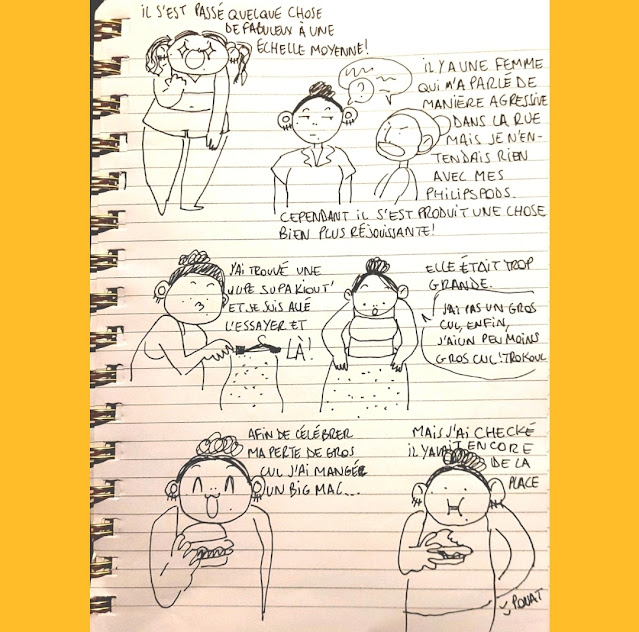 IL S'EST PASSÉ QUELQUE CHOSE
DE FABULEUX À UNE
ÉCHELLE MOYENNE!
?
IL Y A UNE FEMME
QUI M'A PARLÉ DE
MANIÈRE AGRESSIVE
DANS LA RUE
MAIS JE N'EN-
TENDAIS RIEN
AVEC MES
PHILIPSPODS.
CEPENDANT IL S'EST PRODUIT UNE CHOSE
BIEN PLUS RÉJOUISSANTE!
J'AI TROUVÉ UNE
JUPE SUPA KIOUT'
ET JE SUIS ALLÉ
L'ESSAYER ET
LÀ!
ELLE ÉTAIT TROP
GRANDE.
J'AI PAS UN GROS
CUL, ENFIN,
J'AI UN PEU MOINS
GROS CUL! TROKOUL
AFIN DE CÉLÉBRER
MA PERTE DE GROS
CUL J'AI MANGER
UN BIG MAC...
MAIS J'AI CHECKÉ
IL Y AVAIT ENCORE
DE LA
PLACE
POUAT